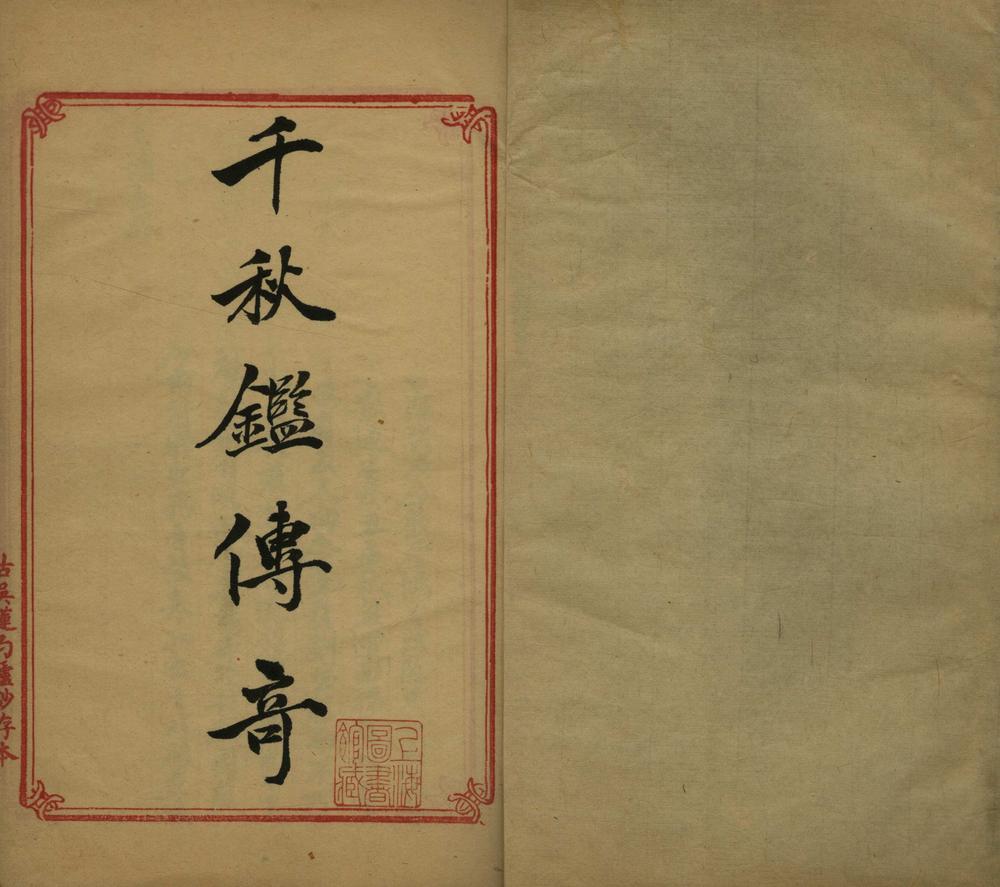 千秋鑑傳奇
上海圖書館藏
古吳蓮勺廬抄存本